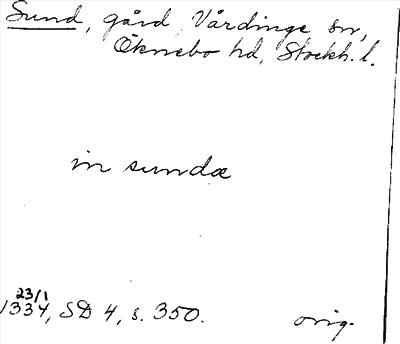 Sund, gård, Vårdinge sn,
Öknebo hd, Stockh. l.
in sundæ
23/1
1334, SD 4, s. 350.
orig.